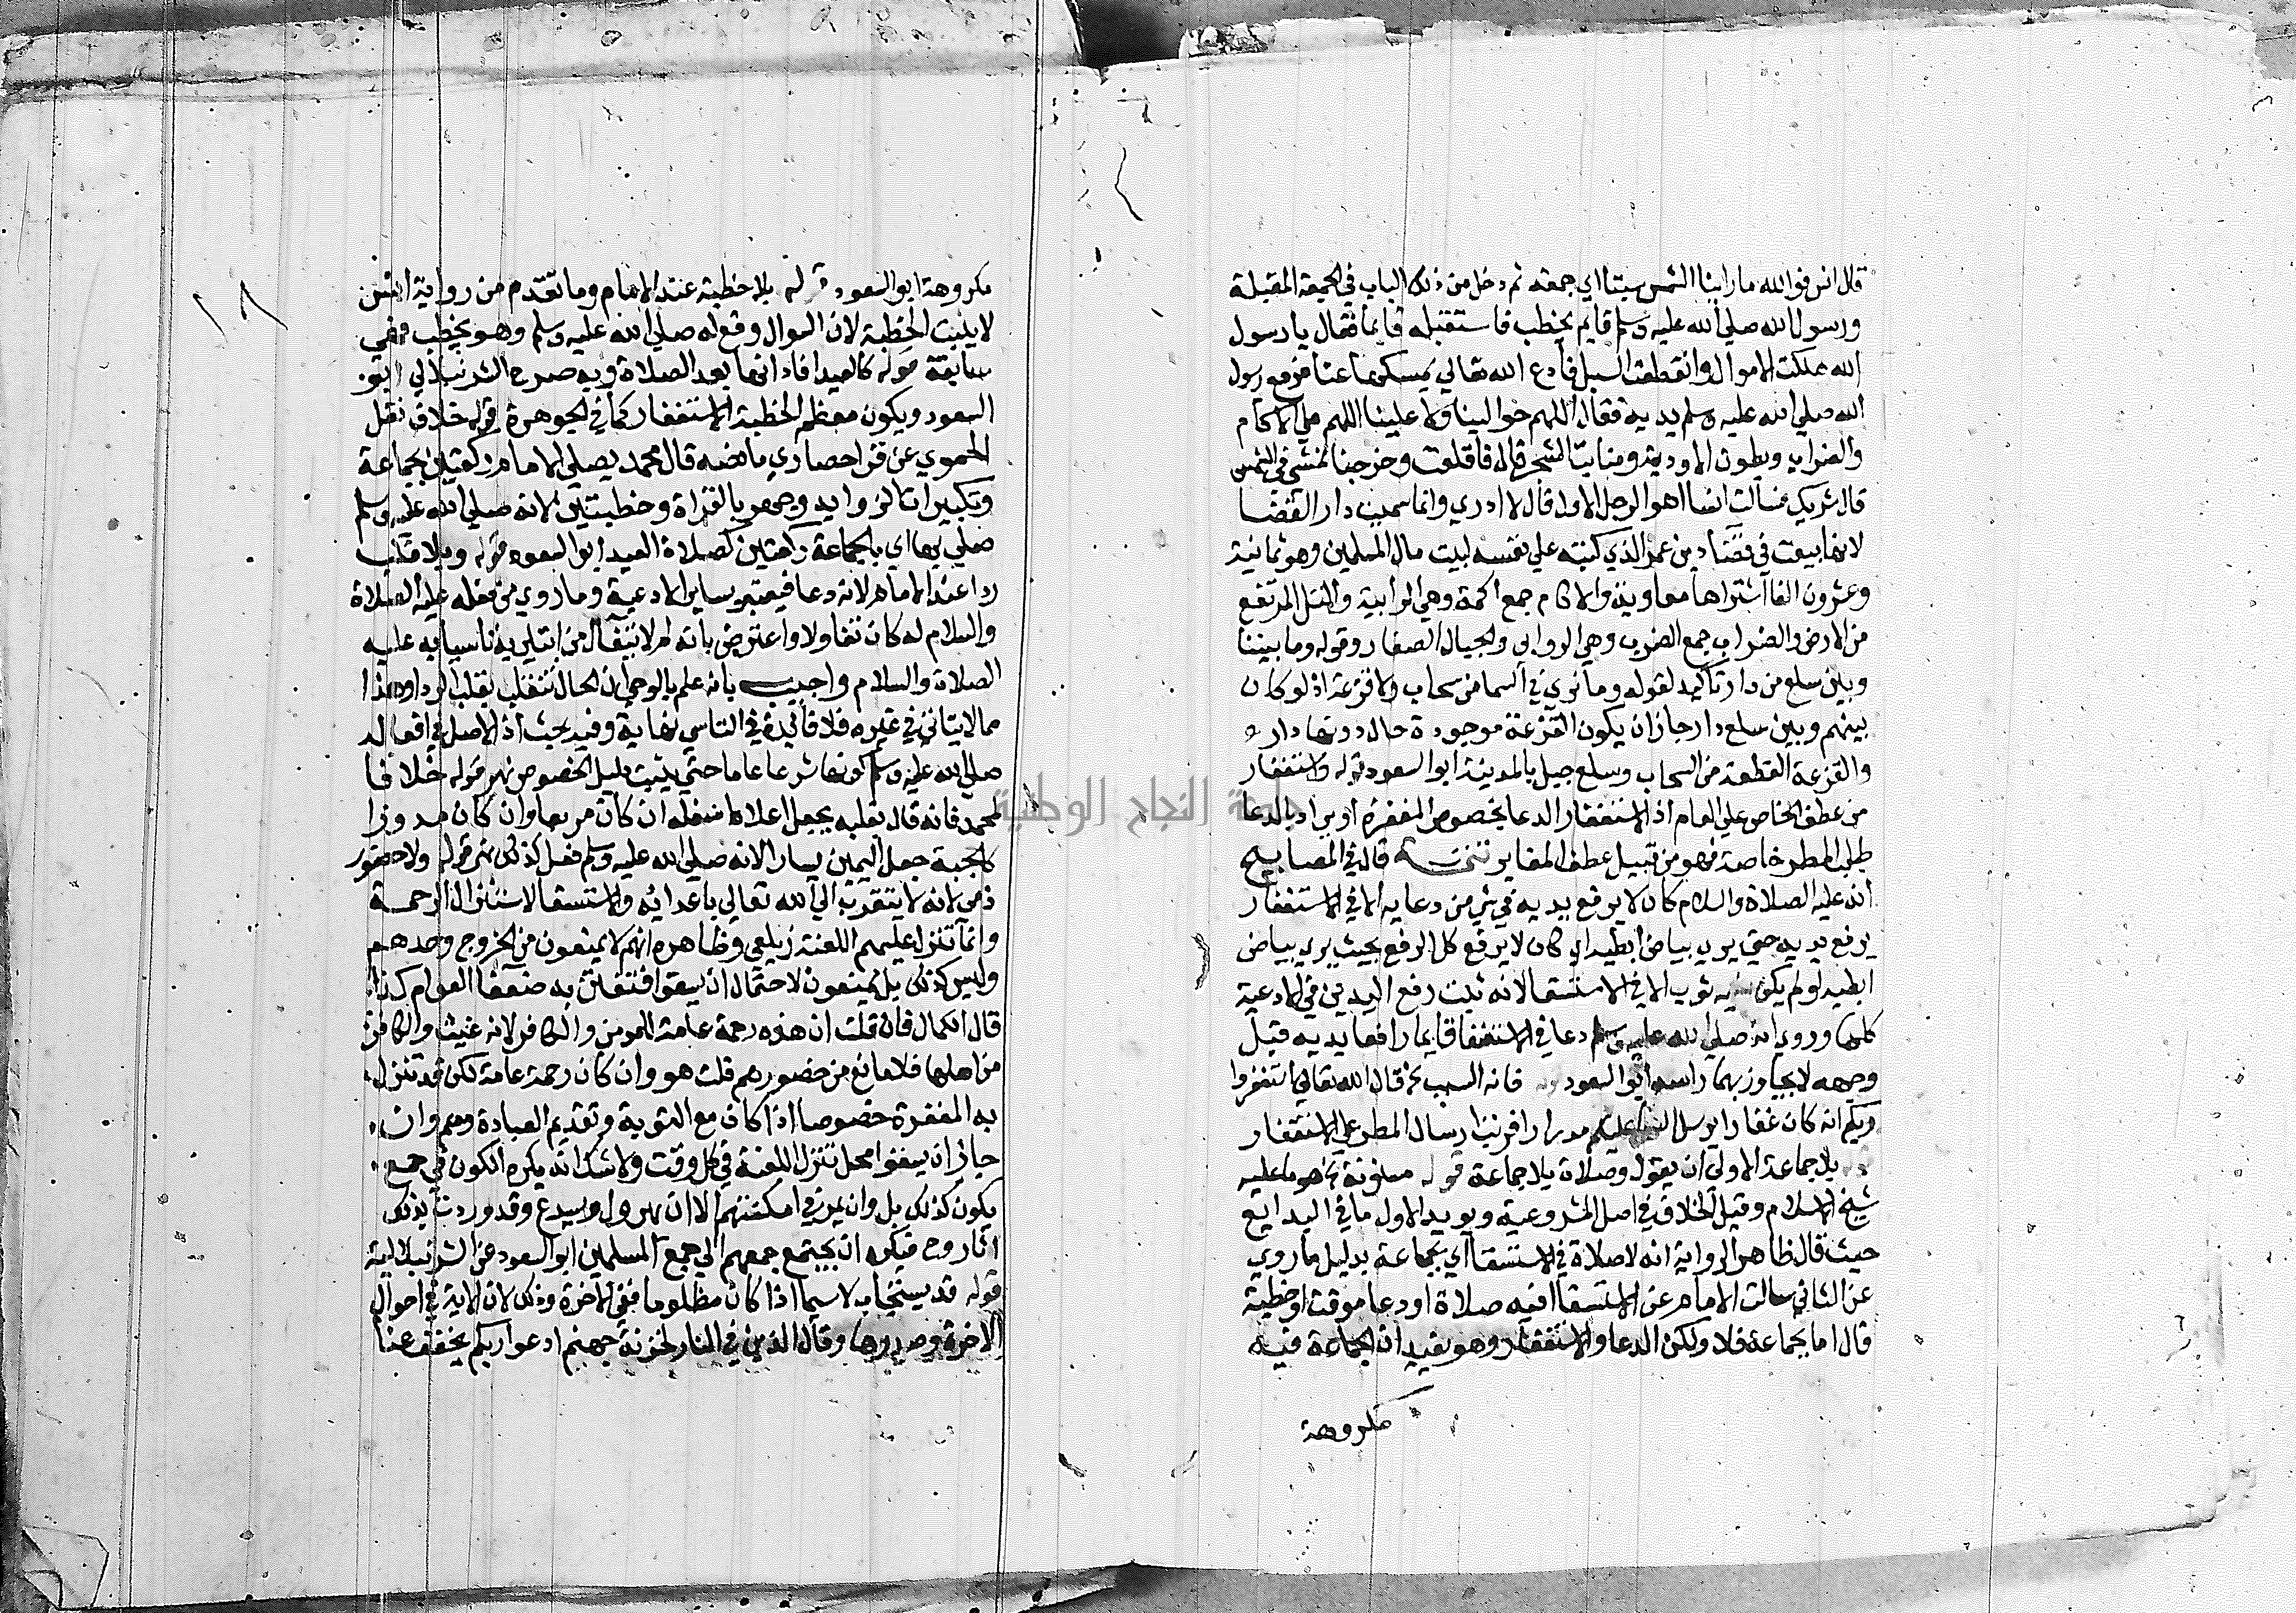 قال انس فوالله ما راينا الشمس سبتا اي جمعة ثم دخل من ذلك الباب في الجمعة المقبلة
ورسول الله صلي الله عليه وسلم قايم يخطب فاستقبله قايما فقال يا رسول
الله هلكت الاموال وانقطعت السبل فادع الله تعالي يمسكها عنا فرفع رسول
الله صلي الله عليه وسلم يديه فقال اللهم حوالينا ولا علينا اللهم علي الاكام
والضراب وبطون الاودية ومنابت الشجر قال فاقلعت وخرجنا نمشي في الشمس
قال شريك فسالت انسا اهو الرجل الاول قال لا ادري وانما سميت دار القضا
لانها بيعت في قضاء دين عمر الذي كتبه علي نفسه لبيت مال المسلمين وهو ثمانية
وعشرون الفا اشتراها معاوية والاكام جمع اكمة وهي الرابية والتل المرتفع
من الارض والضراب جمع الضرب وهي الروابي والجبال الصغار وقوله وما بيننا
وبين سلع من دار تاكيد لقوله وما نري في السما من سحاب ولا قزعة اذ لو كان
بينهم وبين سلع دار جاز ان يكون القزعة موجودة حال دونها دار
والقزعة القطعة من السحاب وسلع جبل بالمدينة ابو السعود قوله واستغفار
من عطف الخاص علي العام اذ الاستغفار الدعا بخصوص المغفرة او يراد بالدعا
طلب المطر خاصة فهو من قبيل عطف المغاير تتمة قال في المصابيح
انه عليه الصلاة والسلام كان لا يرفع يديه في شي من دعايه الا في الاستغفار
يرفع يديه حتي يري بياض ابطيه اي كان لا يرفع كل الرفع بحيث يري بياض
ابطيه لو لم يكن عليه ثوب الا في الاستسقا لانه ثبت رفع اليدين في الادعية
كلها وروي انه صلي الله عليه وسلم دعا في الاستغفا قايما رافعا يديه قبل
وجهه لا يجاوز بهما راسه ابو السعود قوله فانه السبب الخ قال الله تعالي استغفروا
ربكم انه كان غفارا يرسل السما عليكم مدرارا فرتب ارسال المطر علي الاستغفار
قوله بلا جماعة الاولي ان يقول وصلاة بلا جماعة قوله مسنونة كما هو ما عليه
شيخ الاسلام وقيل الخلاف في اصل المشروعية ويويد الاول ما في البدايع
حيث قال ظاهر الرواية انه لا صلاة في الاستسقا اي بجماعة بدليل ما روي
عن الثاني سالت الامام عن الاستسقا افيه صلاة او دعا موقت او خطبة
قال اما بجماعة فلا ولكن الدعا والاستغفار وهو يفيد ان الجماعة فيه
مكروهة
١٨
مكروهة ابو السعود قوله بلا خطبة عند الامام وما تقدم من رواية انس
لا يثبت الخطبة لان السوال وقع له صلي الله عليه وسلم وهو يخطب فهي
سابقة قوله كالعيد افاد انها بعد الصلاة وبه صرح الشرنبلالي ابو
السعود ويكون معظم الخطبة الاستغفار كما في الجوهرة قوله خلاف نقل
الحموي عن قراحصاري ما نصه قال محمد يصلي الامام ركعتين بجماعة
وتكبيرات الزوايد وجهر بالقراة وخطبتين لانه صلي الله عليه وسلم
صلي بها اي بالجماعة ركعتين كصلاة العيد ابو السعود قوله وبلا قلب
ردا عند الامام لانه دعا فيعتبر بساير الادعية وما روي من فعله عليه الصلاة
والسلام له كان تفاولا واعترض بانه لم لا يتفال من ابتلي به تاسيا به عليه
الصلاة والسلام واجيب بانه علم بالوحي ان الحال تنقلب بقلب الردا وهذا
مما لا يتاتي في غيره فلا فايدة في التاسي نهاية وفيه بحث اذ الاصل في افعاله
صلي الله عليه وسلم كونها شرعا عاما حتي يثبت دليل الخصوص نهر قوله خلافا
لمحمد فانه قال بقلبه يجعل اعلاه اسفله ان كان مربعا وان كان مدورا
كالجبة جعل اليمين يسارا لانه صلي الله عليه وسلم فعل كذلك نهر قوله ولا حضور
ذمي لانه لا يتقرب الي الله تعالي باعدائه والاستسقا لاستنزال الرحمة
وانما تنزل عليهم اللعنة زيلعي وظاهره انهم لا يمنعون من الخروج وحدهم
وليس كذلك بل يمنعون لاحتمال ان يسقوا فتفتتن به ضعفا العوام كذا
قال الكمال فان قلت ان هذه رحمة عامة للمومن والكافر لانه غيث والكافر
من اهلها فلا مانع من حضورهم قلت هو وان كان رحمة عامة لكن قد تنزل
به المغفرة خصوصا اذا كان مع التوبة وتقديم العبادة وهم وان
جاز ان يسقوا محل تنزل اللعنة في كل وقت ولا شك انه يكره الكون في جمع
يكون كذلك بل وان يمر في امكنتهم الا ان يهرول ويسرع وقد وردت بذلك
اثار وح فيكره ان يجتمع جمعهم الي جمع المسلمين ابو السعود عن الشرنبلالية
قوله قد يستجاب لاسيما اذا كان مظلوما ففي الاخرة وذلك لان الاية في احوال
الاخرة وصدرها وقال الذين في النار لخزنة جهنم ادعوا ربكم يخفف عنا
جامعة النجاح الوطنية